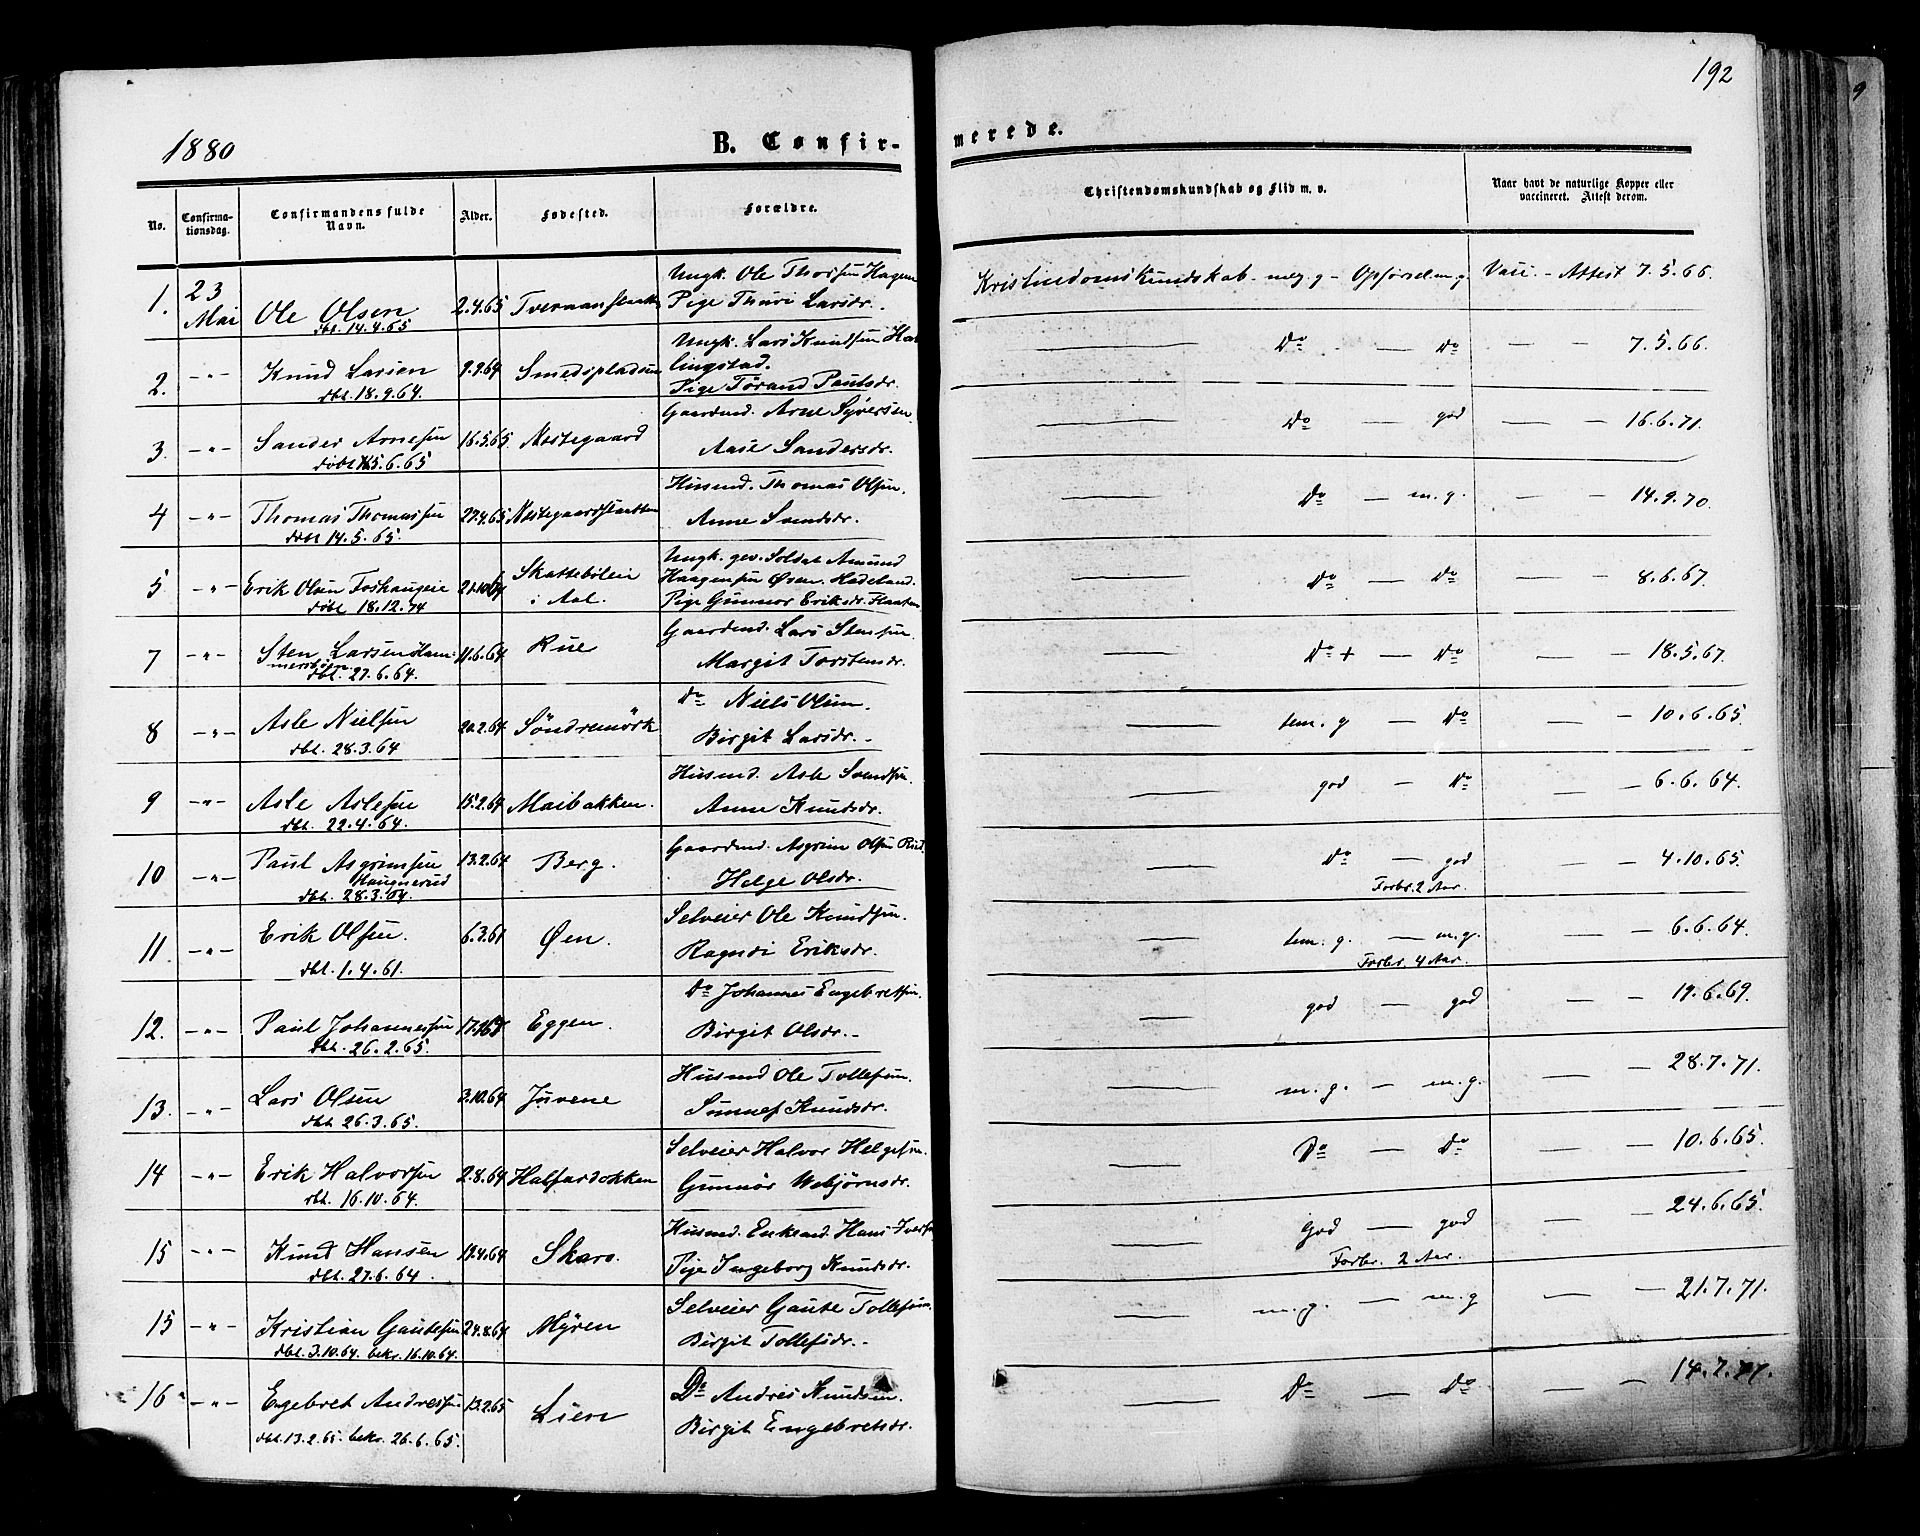 192
1880
B. Confir-
merede.
No.
Confirma-
tionsdag.
Confirmandens fulde
Navn.
Alder.
Fødested.
Forældre.
Christendomskundskab og Flid m. v.
Naar havt de naturlige Kopper eller
vaccineret. Attest derom.
1. 23 Mai Ole Olsen 2.4.65 Ungk. Ole Thorsen Hagen
dbt. 14.4.65 Pige Thuri Larsdr.
Kristendomskundskab meg. g - Opførsel m. g. Vacc. - Attest 7.5.66.
2. -"- Knud Larsen 9.9.64 Smedspladsen Ungk. Lars Knudsen Hal
lingstad.
dbt. 18.9.64. Pige Torand Paulsdr.
Do - Do - - 7.5.66.
3. -"- Sander Arnesen 16.5.65 Nestegaard Gaardmd. Arne Syversen
døbt 5.6.65 Aase Sandersdr.
Do - god - 16.6.71.
4 -"- Thomas Thomassen 27.4.65 Nestegaardseiet Husmd. Thomas Olsen.
døbt 14.5.65. Anne Svendsdr.
Do - m. g. - - 14.9.70.
5 -"- Erik Olsen 21.10.64 Skattebøleie Ungk. gev. Soldat Amund
i Aal. Haagensen Øsen. Hadeland.
døbt 18.12.74 Pige Gunnor Eriksdr. Flaaten
Do - Do - - 8.6.67.
7 -"- Sten Larsen Ham- 11.6.64 Rue Gaardmd. Lars Stensen.
mersbøen.
dbt. 27.6.64. Margit Torstensdr.
Do + - Do - - 18.5.67.
8 -"- Asle Nielsen 20.2.64 Søndremørk Do Niels Olsen.
dbt. 28.3.64 Birgit Larsdr. -
tem. g - Do - - 10.6.65.
9 -"- Asle Aslesen 15.2.64 Maibakken. Husmd. Asle Svendsen.
dbt. 22.4.64. Anne Knudsdr.
god - Do - - 6.6.64.
10 -"- Paul Asgrimsen 13.2.64 Berg. Gaardmd. Asgrim Olsen Rud.
Haugnerud
dbt. 28.3.64. Helge Olsdr.
Do - god - - 4.10.65.
Forbr. 2 Aar.
11. -"- Erik Olsen. 6.3.61 Øen. Selveier Ole Knudsen.
dbt. 1.4.61. Ragndi Eriksdr.
tem. g. - m. g. - - 6.6.64.
Forbr. 4 Aar.
12. -"- Paul Johannessen Eggen. Do Johannes Engebretsen.
dbt. 26.2.65. Birgit Olsdr. -
god - god - - 19.6.69.
13. -"- Lars Olsen 3.10.64 Juvene Husmd Ole Tollefsen.
dbt. 26.3.65. Sunnef Knudsdr.
m. g. - m. g. - - 28.7.71.
14 -"- Erik Halvorsen 2.8.64 Halfardokken Selveier Halvor Helgesen.
dbt. 16.10.64. Gunnor Webjørnsdr.
Do - Do - 10.6.65.
15 -"- Knud Hansen 19.4.64 Skaro. Husmd. Enkemd. Hans Iversen
dbt. 27.6.64. Pige Ingeborg Knudsdr.
God - god - - 24.6.65.
Forbr. 2 Aar.
15 -"- Kristian Gautesen 24.8.64 Myren Selveier Gaute Tollefsen.
dbt. 3.10.64. bekr. 16.10.64. Birgit Tollefsdr. -
m. g. - m. g - - 21.7.71.
16 -"- Egebret Andressen 13.2.65 Lien Do Andres Knudsen.
dbt. 13.2.65. bekr. 26.6.65. Birgit Engebretsdr.
Do - Do - - 14.7.71.